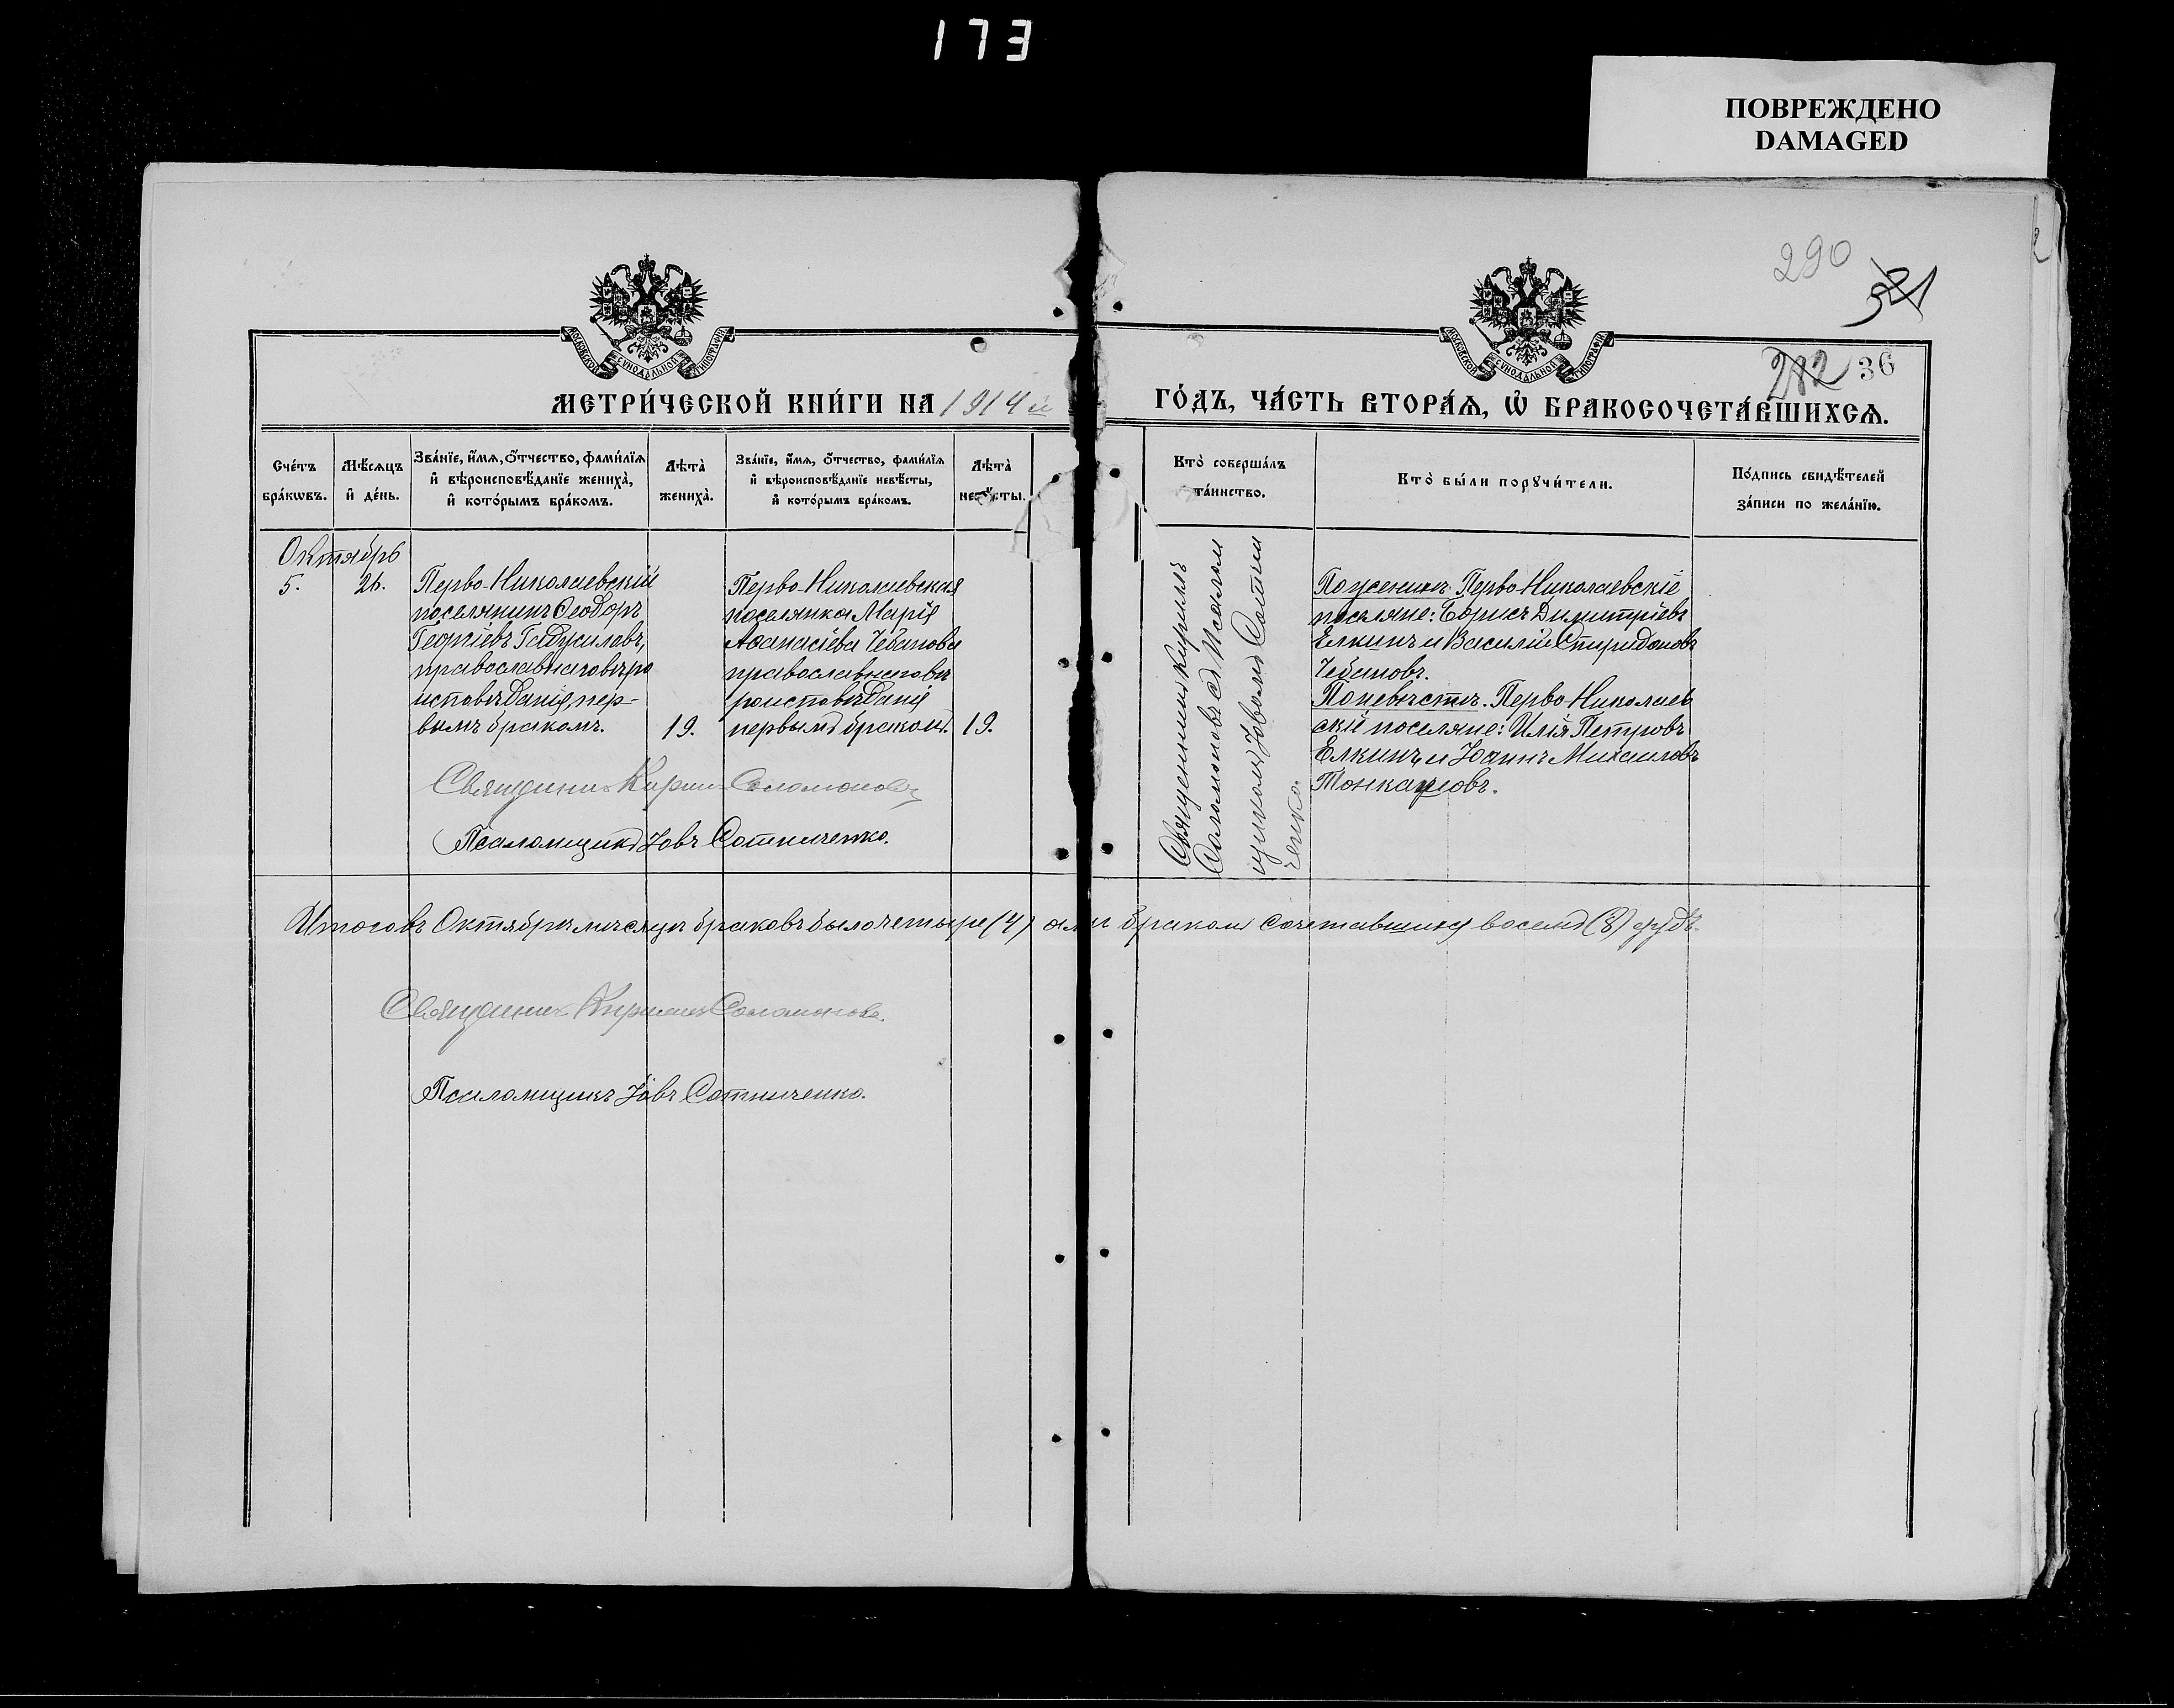 173
ПОВРЕЖДЕНО
DAMAGED
290
321
282 36
МОСКОВСКОЙ СѴНОДАЛЬНОЙ ТИПОГРАФІИ
МОСКОВСКОЙ СѴНОДАЛЬНОЙ ТИПОГРАФІИ
МЕТРИ́ЧЕСКОЙ КНИ́ГИ НА 1914 й
ГО́ДЪ, ЧА́СТЬ ВТОРА́Ѧ, Ѡ҆ БРАКОСОЧЕТА́ВШИХСѦ.
Сче́тъ
бра́кѡвъ.
Мѣ́сѧцъ
и҆ де́нь.
Зва́нїе, и҆́мѧ, ѻ҆́тчество, фами́лїѧ
и҆ вѣроисповѣ́данїе жениха̀,
и҆ кото́рымъ бра́комъ.
Лѣта̀
жениха̀.
Зва́нїе, и҆́мѧ, ѻ҆́тчество, фами́лїѧ
и҆ вѣроисповѣ́данїе невѣ́сты,
и҆ кото́рымъ бра́комъ.
Лѣта̀
невѣ́сты.
Кто̀ соверша́лъ
та́инство.
Кто̀ бы́ли порꙋчи́тели.
По́дпись свидѣ́телей
за́писи по жела́нїю.
Октябрь
5.
26.
Перво-Николаевскій
поселянинъ Ѳеодоръ
Георгіевъ Гаджиловъ,
православнаго вѣро
исповѣданія, пер-
вымъ бракомъ.
19.
Перво-Николаевская
поселянка Марія
Аѳанасіева Чебанова
православнаго вѣ
роисповѣданія
первымъ бракомъ.
19.
Священникъ Кириллъ
Соломоновъ съ Псалом
щикомъ Іовомъ Сотни
ченко.
По женихѣ: Перво-Николаевскіе
поселяне: Борисъ Димитріевъ
Елкинъ и Василій Спиридоновъ
Чебановъ.
По невѣстѣ. Перво-Николаев
скіе поселяне: Илія Петровъ
Елкинъ и Іоаннъ Михаиловъ
Тонкагловъ.
Священникъ Кириллъ Соломоновъ
Псаломщикъ Іовъ Сотниченко.
Итого въ Октябрѣ мѣсяцѣ браковъ было четыре (4) а лицъ бракомъ сочетавшихся восемь (8) душъ.
Священникъ Кириллъ Соломоновъ.
Псаломщикъ Іовъ Сотниченко.